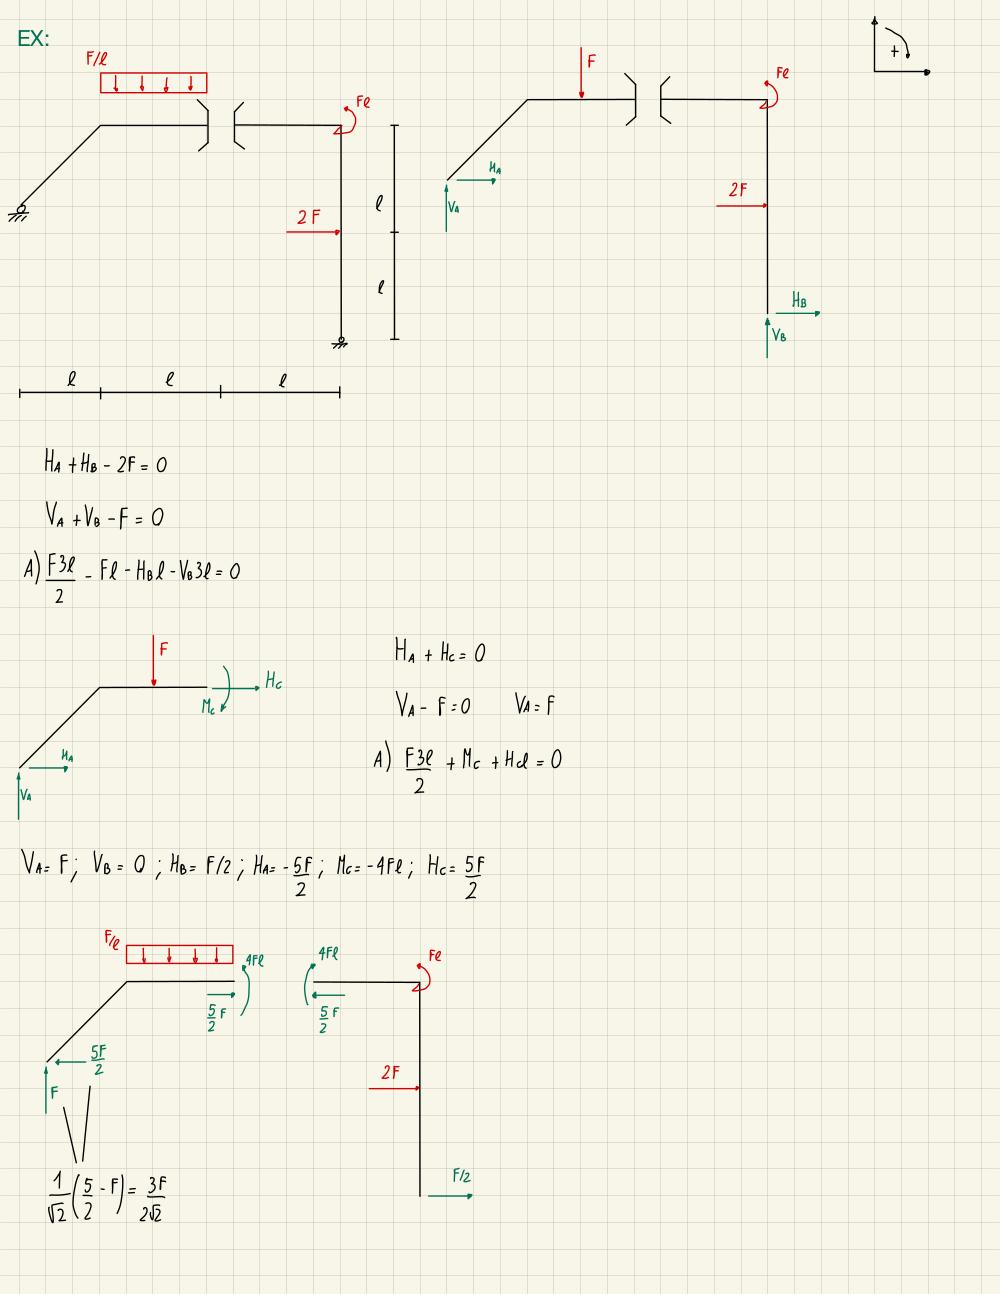 EX:
F/ℓ
Fℓ
2F
ℓ
ℓ
ℓ ℓ ℓ
F
Fℓ
H_A
V_A
2F
H_B
V_B
+
H_A + H_B - 2F = 0
V_A + V_B - F = 0
A) F3ℓ/2 - Fℓ - H_Bℓ - V_B3ℓ = 0
F
H_C
M_C
H_A
V_A
H_A + H_C = 0
V_A - F = 0 V_A = F
A) F3ℓ/2 + M_C + H_Cℓ = 0
V_A = F ; V_B = 0 ; H_B = F/2 ; H_A = -5F/2 ; M_C = -4Fℓ ; H_C = 5F/2
F/ℓ
4Fℓ
5/2 F
5F/2
F
4Fℓ
5/2 F
Fℓ
2F
F/2
1/√2 (5/2 - F) = 3F/2√2